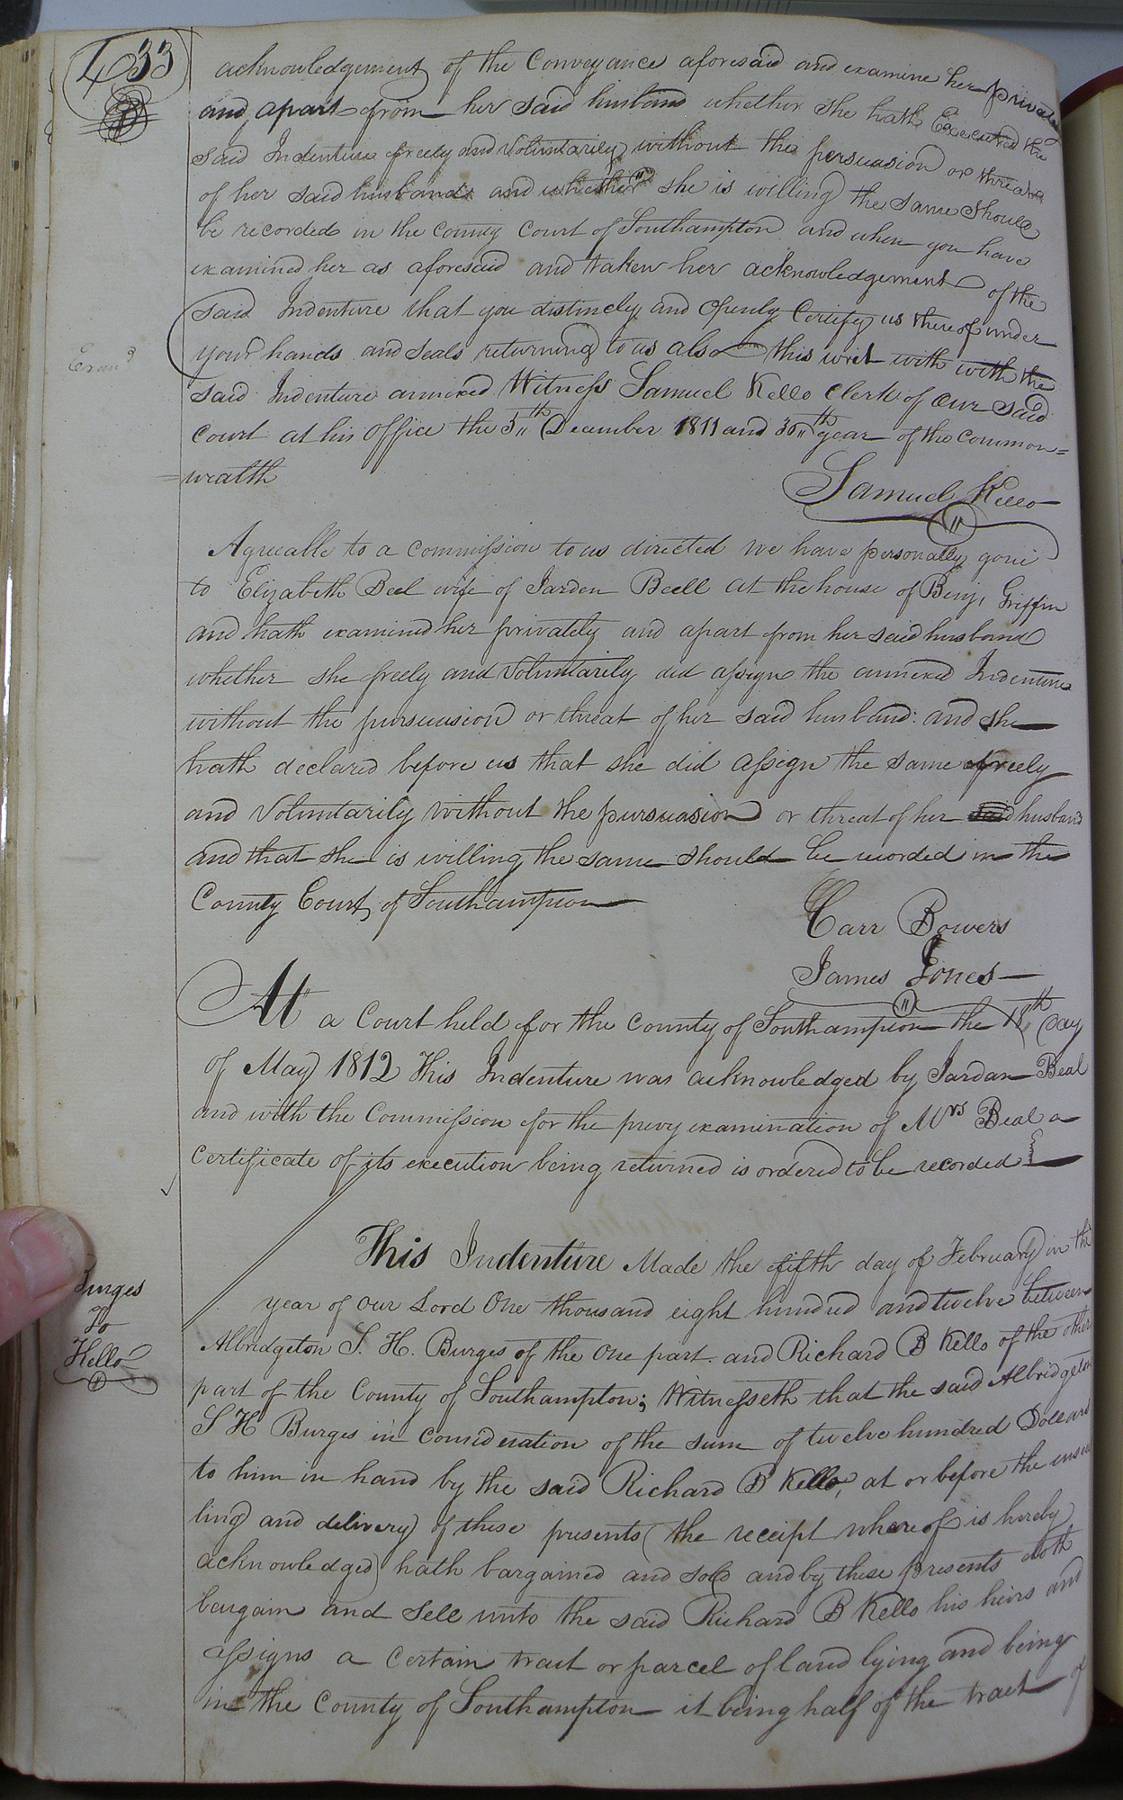 433
acknowledgement of the Conveyance aforesaid and examine her privately
and apart from her said husband whether she hath Executed the
said Indenture freely and Voluntarily without the persuasion or threats
of her said husband and whether she is willing the same should
be recorded in the County Court of Southampton and when you have
examined her as aforesaid and taken her acknowledgement of the
said Indenture that you distinctly and Openly Certify us thereof under
your hands and seals returning to us also this writ with with the
Exam.d
said Indenture annexed Witness Samuel Kello Clerk of our said
Court at his Office the 5th December 1811 and 36th year of the Common=
=wealth
Samuel Kello
Agreeable to a commission to us directed we have personally gone
to Elizabeth Beel wife of Jarden Beell at the house of Benj. Griffin
and hath examined her privately and apart from her said husband
whether she freely and Voluntarily did assign the annexed Indenture
without the pursuasion or threat of her said husband: and she
hath declared before us that she did assign the same freely
and Voluntarily without the pursuasion or threat of her said husband
and that she is willing the same should be recorded in the
County Court of Southampton
Carr Bowers
James Jones
At a Court held for the County of Southampton the 18th day
of May 1812 This Indenture was acknowledged by Jardan Beal
and with the Commission for the privy examination of Mrs Beal a
Certificate of its execution being returned is ordered to be recorded
This Indenture Made the fifth day of February in the
year of our Lord One thousand eight hundred and twelve between
Burges
To
Kello
Albridgeton S. H. Burges of the One part and Richard B Kello of the other
part of the County of Southampton; Witnesseth that the said Albridgeton
S H Burges in consideration of the sum of twelve hundred Dollars
to him in hand by the said Richard B Kello, at or before the ensea
ling and delivery of these presents (the receipt whereof is hereby
acknowledged) hath bargained and sold and by these presents doth
bargain and Sell unto the said Richard B Kello his heirs and
assigns a Certain tract or parcel of land lying and being
in the County of Southampton it being half of the tract of